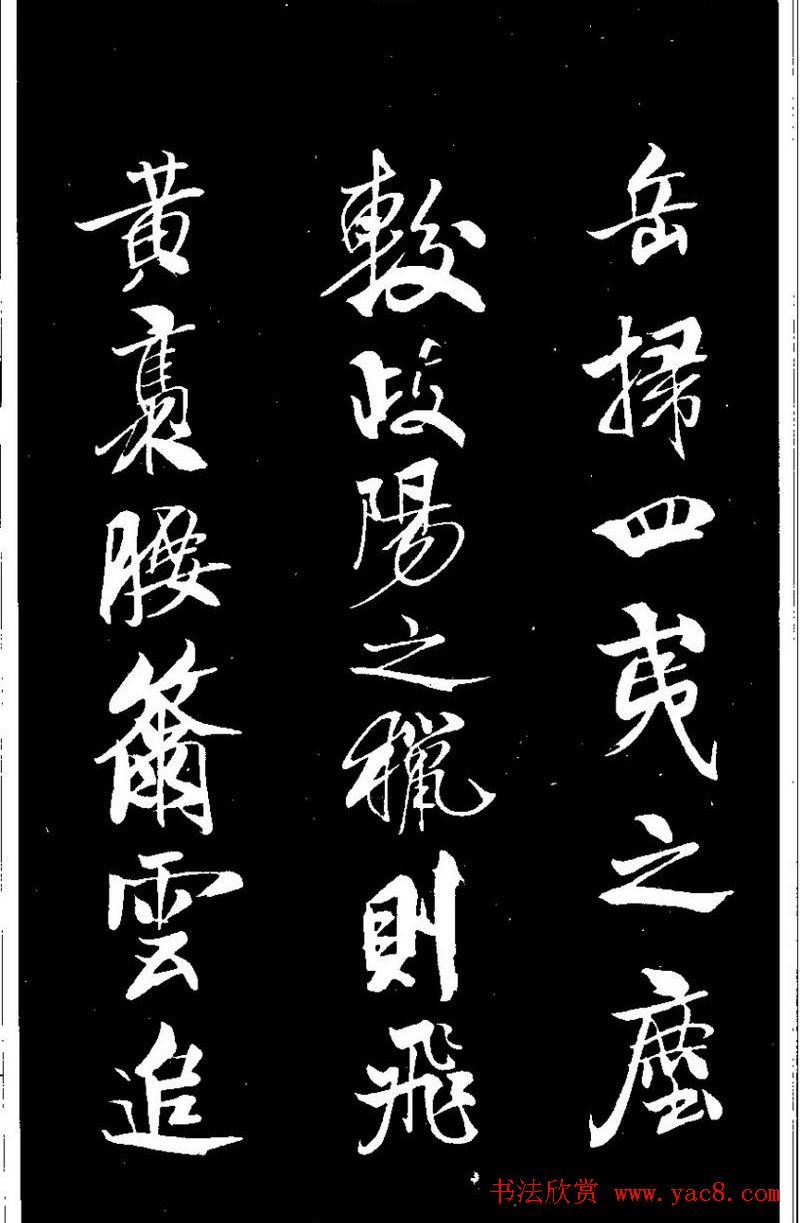 岳掃四夷之塵
較歧陽之獵則飛
黃褭腰籋雲追
书法欣赏 www.yac8.com